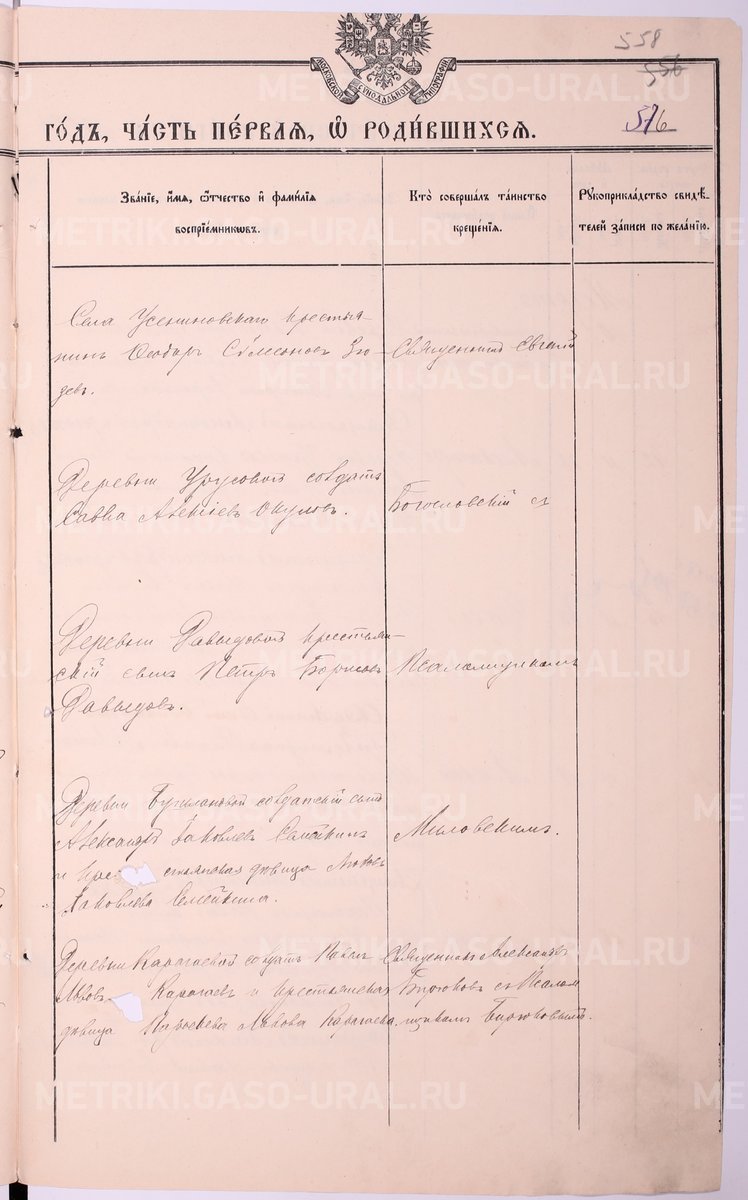 558
556
576
МОСКОВСКОЙ СѴНОДАЛЬНОЙ ТИПОГРАФІИ
ГО́ДЪ, ЧА́СТЬ ПЕ́РВАѦ, Ѽ РОДИ́ВШИХСѦ.
Зва́нїе, и҆́мѧ, ѻ҆́тчество и҆ фами́лїѧ
воспрїе́мникѡвъ.
Кто̀ соверша́лъ та́инство
креще́нїѧ.
Рꙋкоприкла́дство свидѣ́-
телей за́писи по жела́нїю.
Села Усениновскаго крестья-
нинъ Ѳеодоръ Сѵмеоновъ
девъ.
Священникъ Евгеній
Деревни Урусовой солдатъ
Савва Алексіевъ Окуловъ.
Богословскій съ
Деревни Давыдовой крестьян-
скій сынъ Петръ Борисовъ
Давыдовъ.
Псаломщикомъ
Деревни солдатскій сынъ
Александръ Іаковлевъ Семейкинъ
и крестьянская дѣвица Любовь
Іаковлева Семейкина.
Миловскимъ.
Деревни Карагаевой солдатъ Павелъ
Львовъ Карагаевъ и крестьянская
дѣвица Львова Карагаева.
Священникъ Александръ
Бирюковъ съ Псалом
щикомъ Бирюковымъ.
METRIKI.GASO-URAL.RU